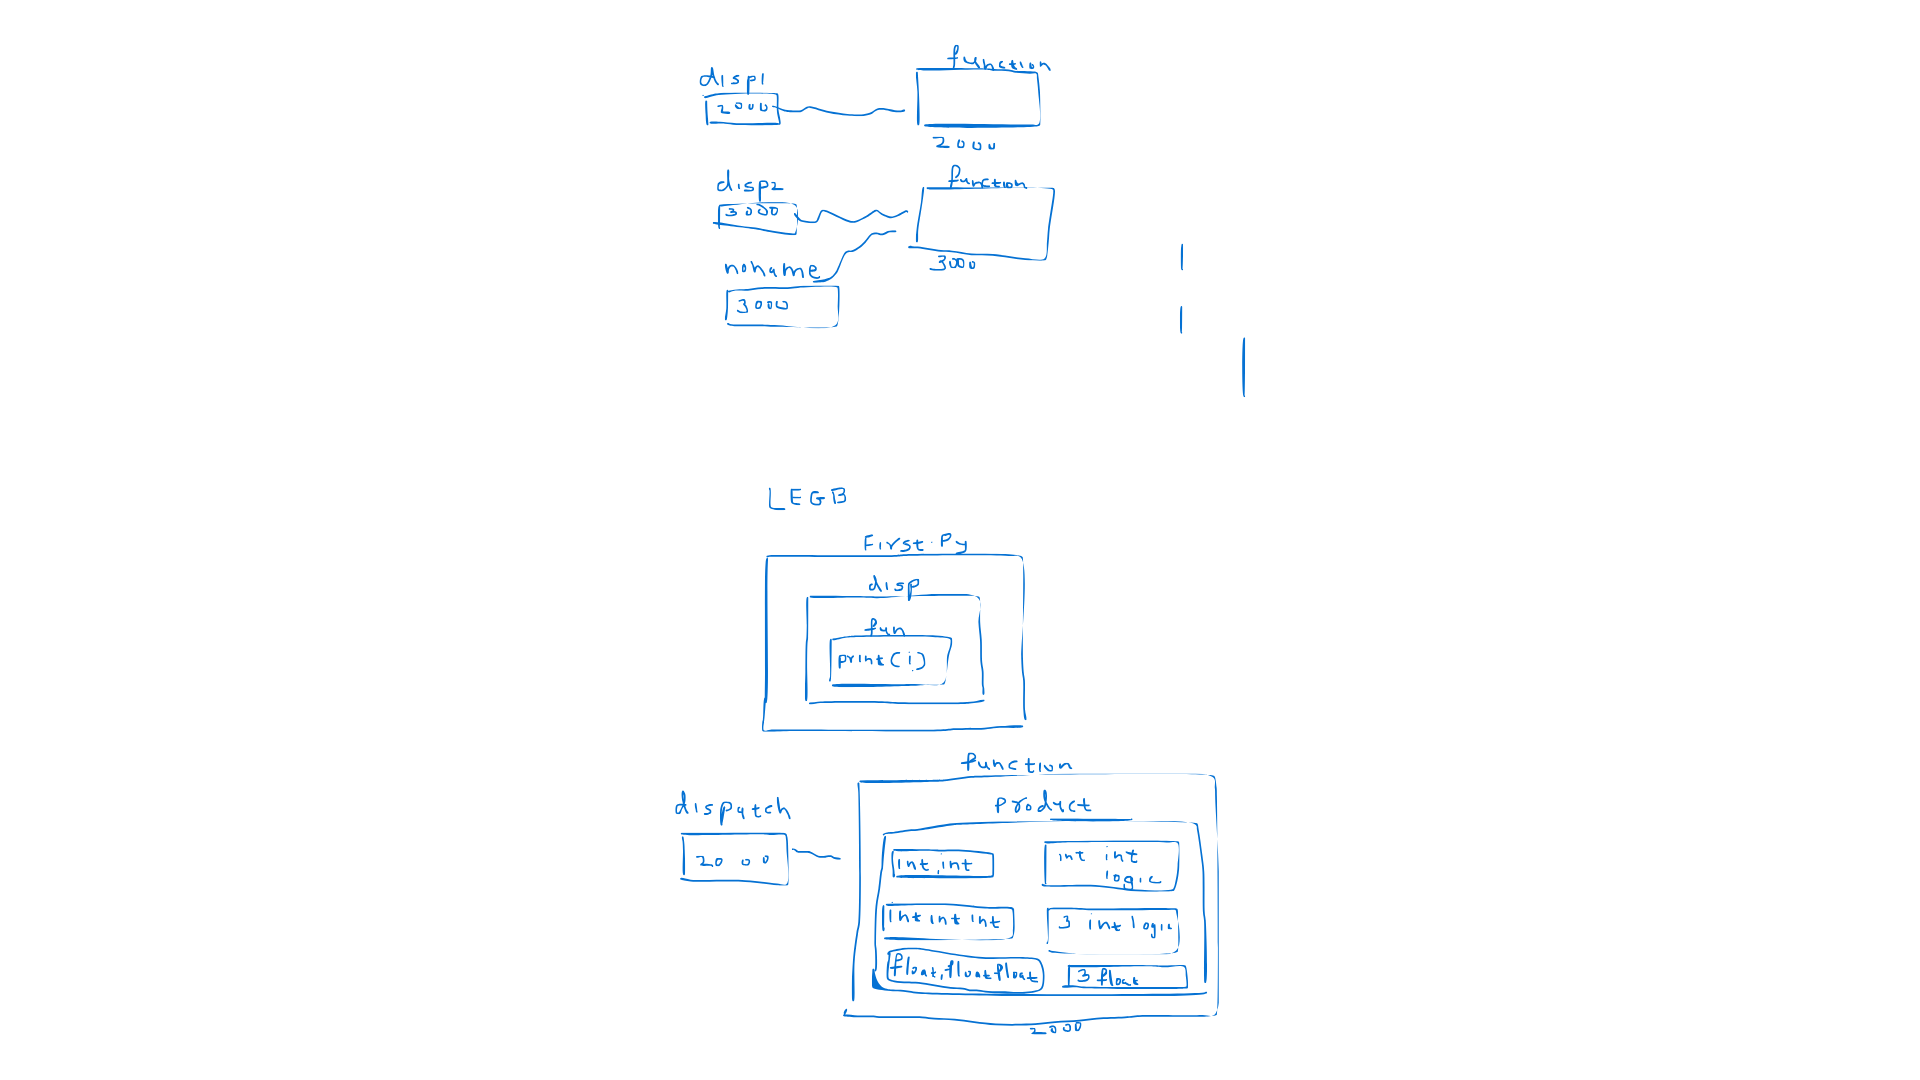 function
disp1
2000
2000
function
disp2
3000
3000
noname
3000
LEGB
First.Py
disp
fun
print(i)
function
dispatch
product
2000
int,int
int int
logic
int int int
3 int logic
float,float float
3 float
2000